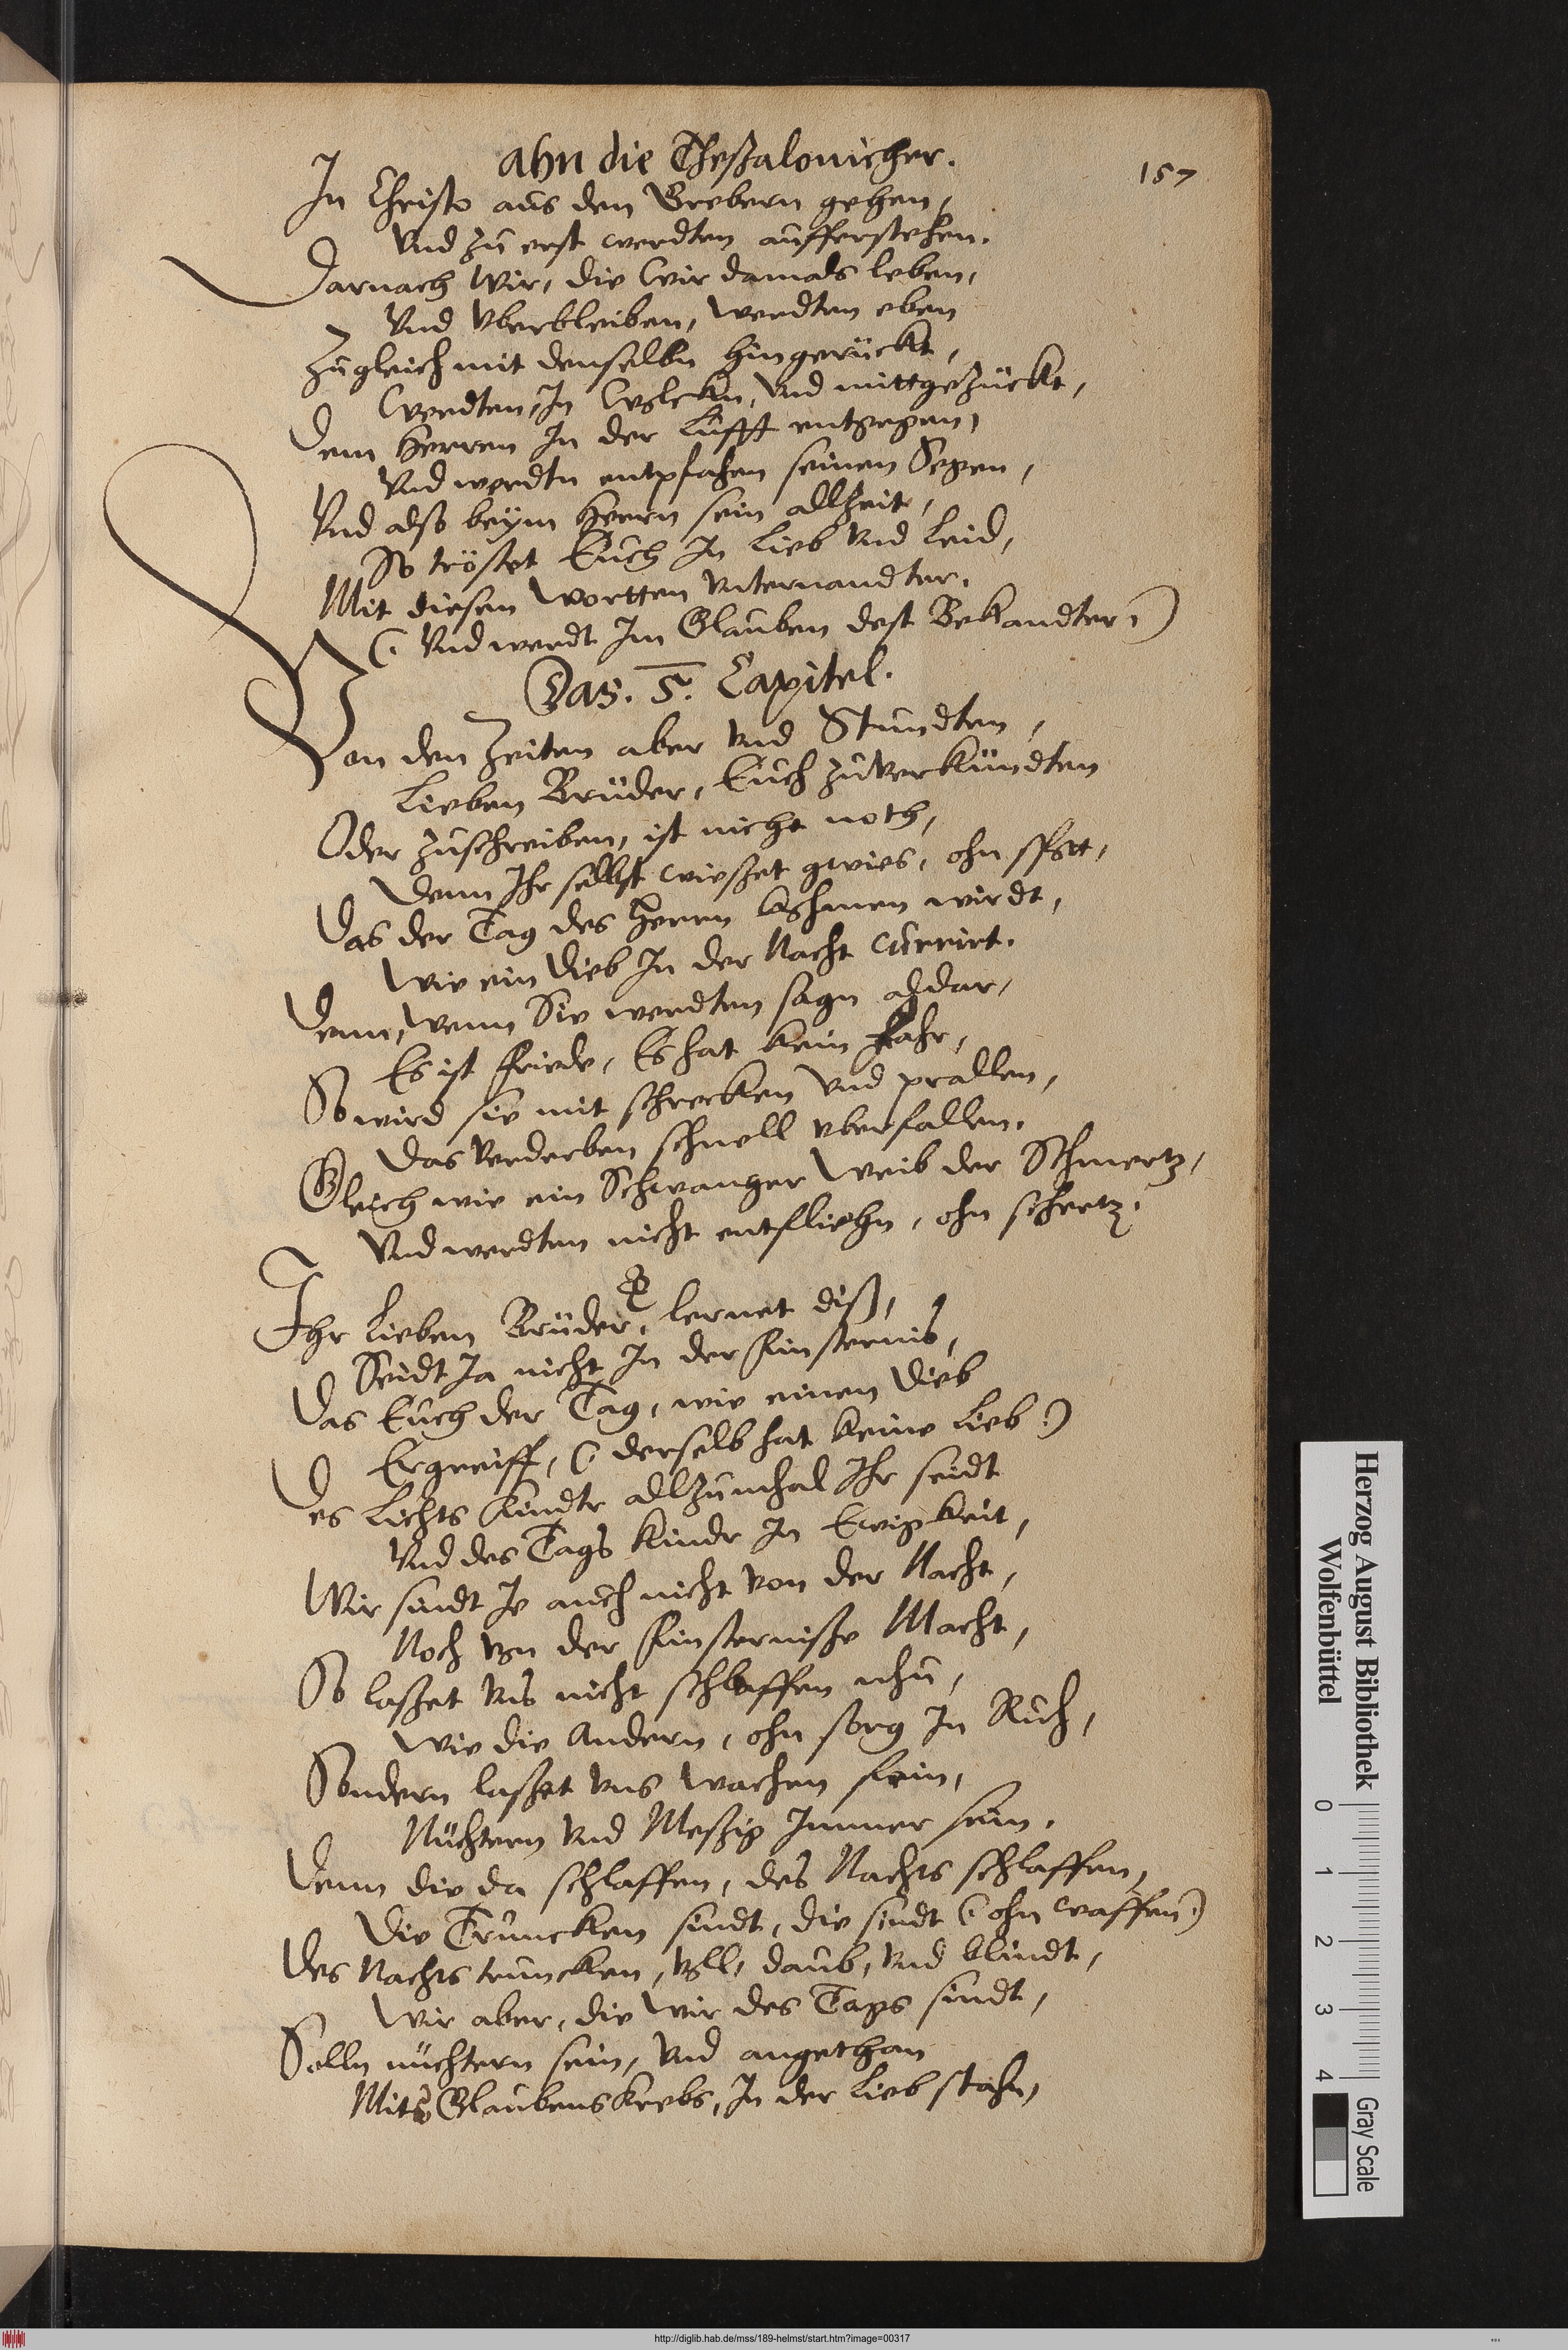 ahn die Theßalonicher.
157
In Christo aus den Grebern gehen,
Vnd zu erst werdten aufferstehen.
Darnach Wir, die Wir damals leben,
Vnd Vberbleiben, werdten eben
Zugleich mit denselbn hingerückt,
Werdten, In Wolckn, Vnd mittgezückt,
Dem Herren In der Lufft entgegen,
Vnd werdtn entpfahen seinen Segen,
Vnd also beÿm Herrn sein allzeit,
So tröstet Euch In Lieb Vnd Leid,
Mit diesen Wortten Vnternandter.
(Vnd werdt Im Glauben dest Bekandter.)
Das. 5. Capitel.
Von den Zeiten aber Vnd Stundten,
Lieben Brüder, Euch zuverkündten
Oder zuschreiben, ist nicht noth,
Denn Ihr selbst wießet gwies, ohn spott,
Das der Tag des Herrn kohmen wirdt,
Wie ein Dieb In der Nacht currirt.
Denn, Wenn Sie werdten sagn aldar,
Es ist Friede, Es hat kein Fahr,
So wird sie mit schrecken Vnd prallen,
Das Verderben schnell vberfallen.
Gleich wie ein Schwanger Weib der Schmertz,
Vnd werdten nicht entfliehn, ohn schertz.
Ihr Lieben Brüder, lernet diß,
Seidt Ja nicht In der Finsternis,
Das Euch der Tag, wie einen Dieb
Ergreiff, (derselb hat keine Lieb.)
Des Lichts Kindtr allzumhal Ihr seidt
Vnd des Tags Kindr In Ewigkeit,
Wir sindt Je auch nicht von der Nacht,
Noch von der Finsterniße Macht,
So laßet Vns nicht schlaffen nhu,
Wie die Andern, ohn sorg In Ruh,
Sondern laßet vns Wachen fein,
Nüchtern Vnd Meßig Immer sein.
Denn die da schlaffen, des Nachts schlaffen,
Die Truncken sindt, die sindt (ohn waffen.)
Des Nachts truncken, voll, daub, vnd blindt,
Wir aber, die Wir des Tags sindt,
Solln nüchtern sein, Vnd angethan
Mits Glaubens Krebs, In der Lieb stahn,
Herzog August Bibliothek
Wolfenbüttel
0 1 2 3 4
Gray Scale
http://diglib.hab.de/mss/189-helmst/start.htm?image=00317